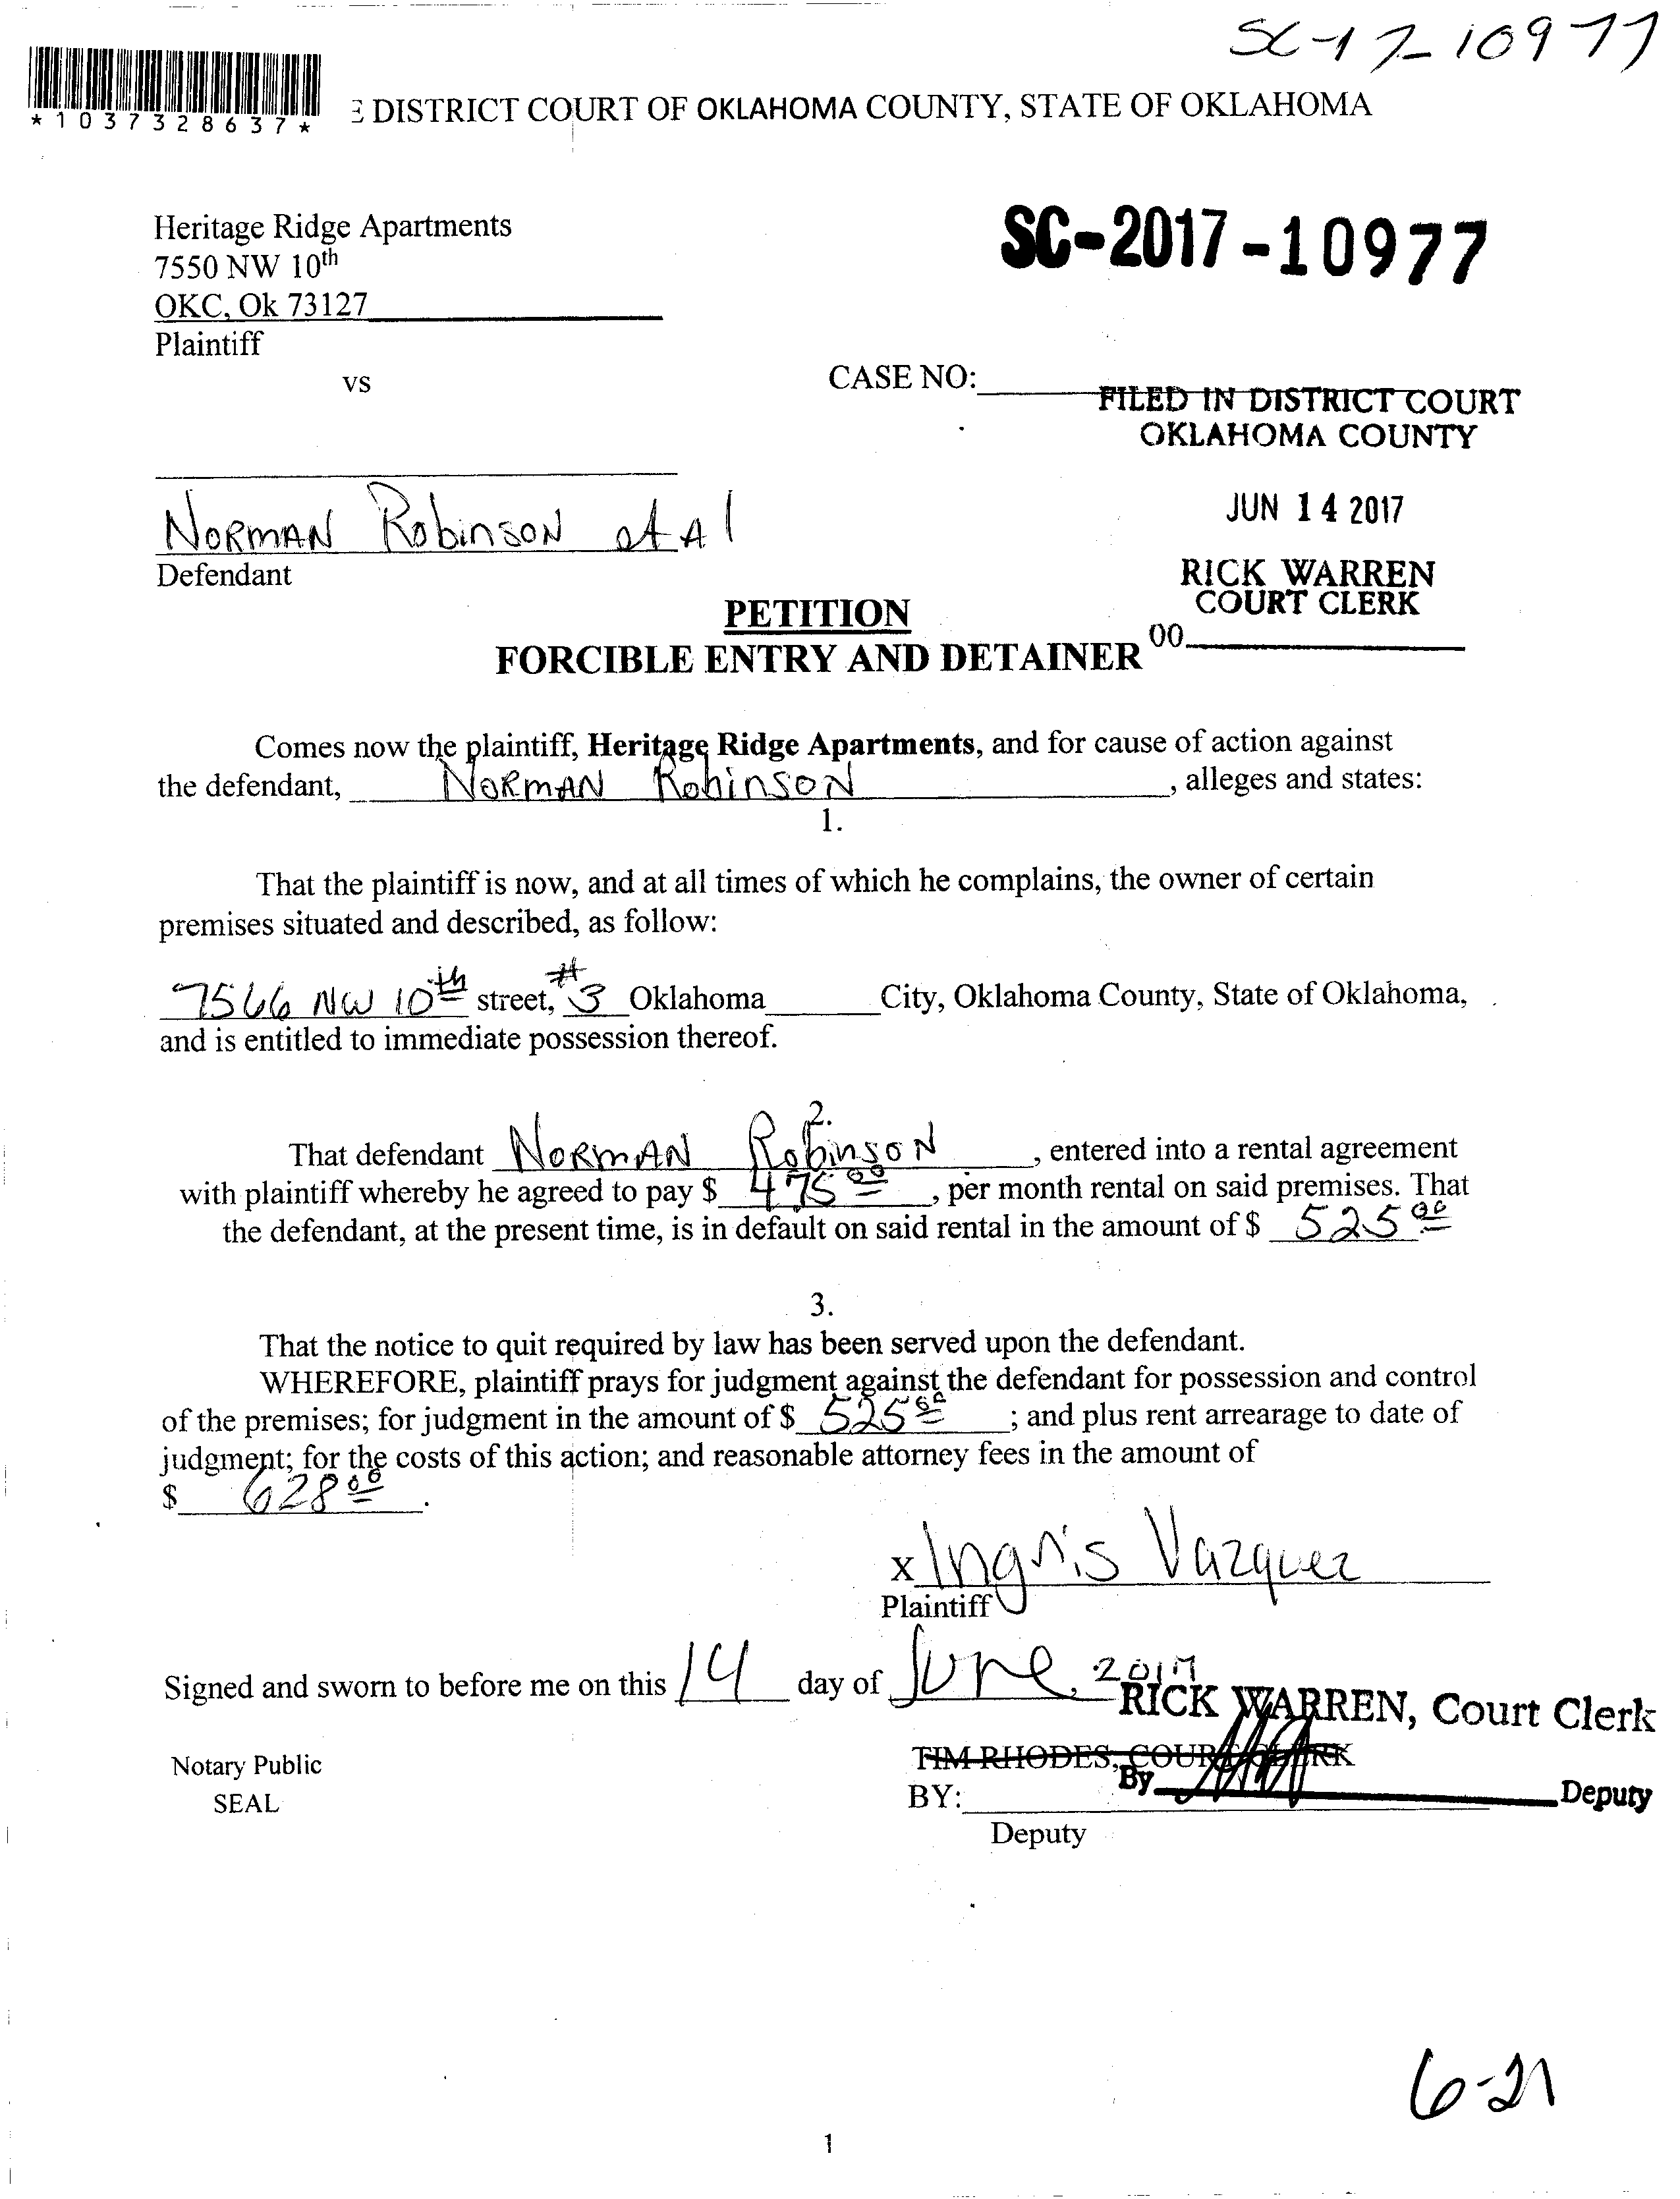 SC-17-10977
*1037328637*
E DISTRICT COURT OF OKLAHOMA COUNTY, STATE OF OKLAHOMA
Heritage Ridge Apartments
7550 NW 10th
OKC, Ok 73127
Plaintiff
vs
SC-2017-10977
CASE NO:
FILED IN DISTRICT COURT
OKLAHOMA COUNTY
JUN 14 2017
RICK WARREN
COURT CLERK
00
NORMAN Robinson et Al
Defendant
PETITION
FORCIBLE ENTRY AND DETAINER
Comes now the plaintiff, Heritage Ridge Apartments, and for cause of action against
the defendant, NORMAN Robinson, alleges and states:
1.
That the plaintiff is now, and at all times of which he complains, the owner of certain
premises situated and described, as follow:
7566 NW 10th street, #3 Oklahoma City, Oklahoma County, State of Oklahoma,
and is entitled to immediate possession thereof.
2.
That defendant NORMAN Robinson, entered into a rental agreement
with plaintiff whereby he agreed to pay $ 475 00, per month rental on said premises. That
the defendant, at the present time, is in default on said rental in the amount of $ 525 00
3.
That the notice to quit required by law has been served upon the defendant.
WHEREFORE, plaintiff prays for judgment against the defendant for possession and control
of the premises; for judgment in the amount of $ 525 00; and plus rent arrearage to date of
judgment; for the costs of this action; and reasonable attorney fees in the amount of
$ 628 00.
x Ingris Vazquez
Plaintiff
Signed and sworn to before me on this 14 day of June, 2017
RICK WARREN, Court Clerk
Notary Public
SEAL
TIM RHODES, COURT CLERK
By Deputy
BY:
Deputy
6-21
1